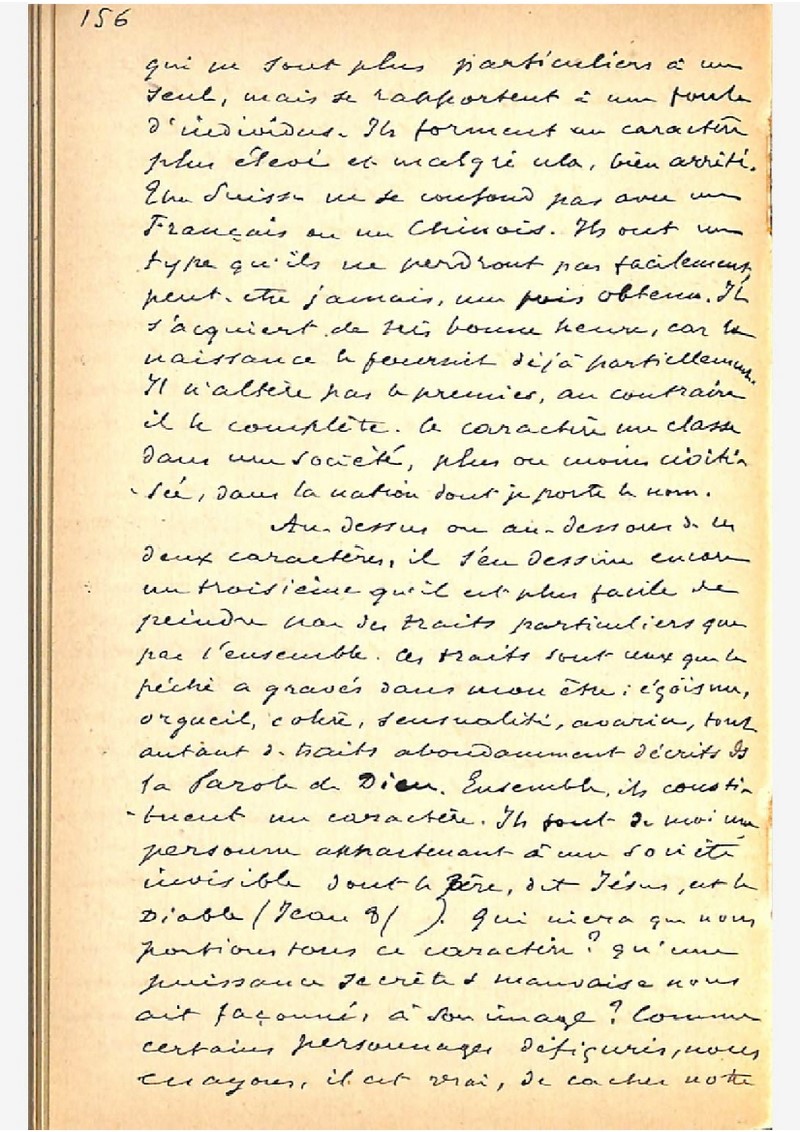 156
qui ne sont plus particuliers à un
seul, mais se rapportent à une foule
d'individus. Ils forment un caractère
plus élevé et malgré cela, bien arrêté.
Un Suisse ne se confond pas avec un
Français ou un Chinois. Ils ont un
type qu'ils ne perdront pas facilement,
peut-être jamais, une fois obtenu. Il
s'acquiert de très bonne heure, car la
naissance le fournit déjà partiellement.
Il n'altère pas le premier, au contraire
il le complète. Ce caractère me classe
dans une société, plus ou moins civili-
-sée, dans la nation dont je porte le nom.
Au-dessus ou au-dessous de ces
deux caractères, il s'en dessine encore
un troisième qu'il est plus facile de
peindre par des traits particuliers que
par l'ensemble. Ces traits sont ceux que le
péché a gravés dans mon être : égoïsme,
orgueil, colère, sensualité, avarice, tout
autant de traits abondamment décrits ds
la Parole de Dieu. Ensemble, ils consti-
-tuent un caractère. Ils font de moi une
personne appartenant à une société
invisible dont le Père, dit Jésus, est le
Diable (Jean 8/ ). Qui niera que nous
portions tous ce caractère ? qu'une
puissance secrète & mauvaise nous
ait façonnés à son image ? Comme
certains personnages défigurés, nous
essayons, il est vrai, de cacher notre